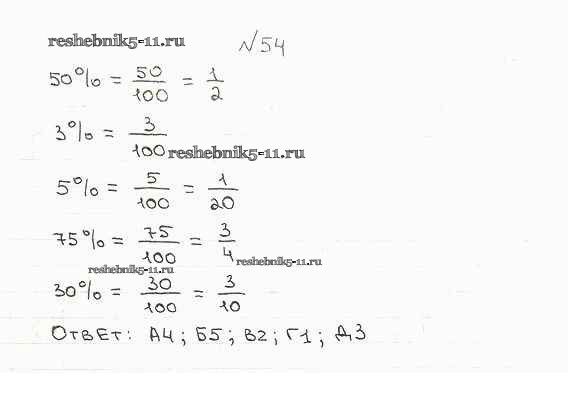 reshebnik5-11.ru
№54
50% = 50/100 = 1/2
3% = 3/100
reshebnik5-11.ru
5% = 5/100 = 1/20
75% = 75/100 = 3/4
reshebnik5-11.ru
reshebnik5-11.ru
30% = 30/100 = 3/10
Ответ: А4; Б5; В2; Г1; Д3